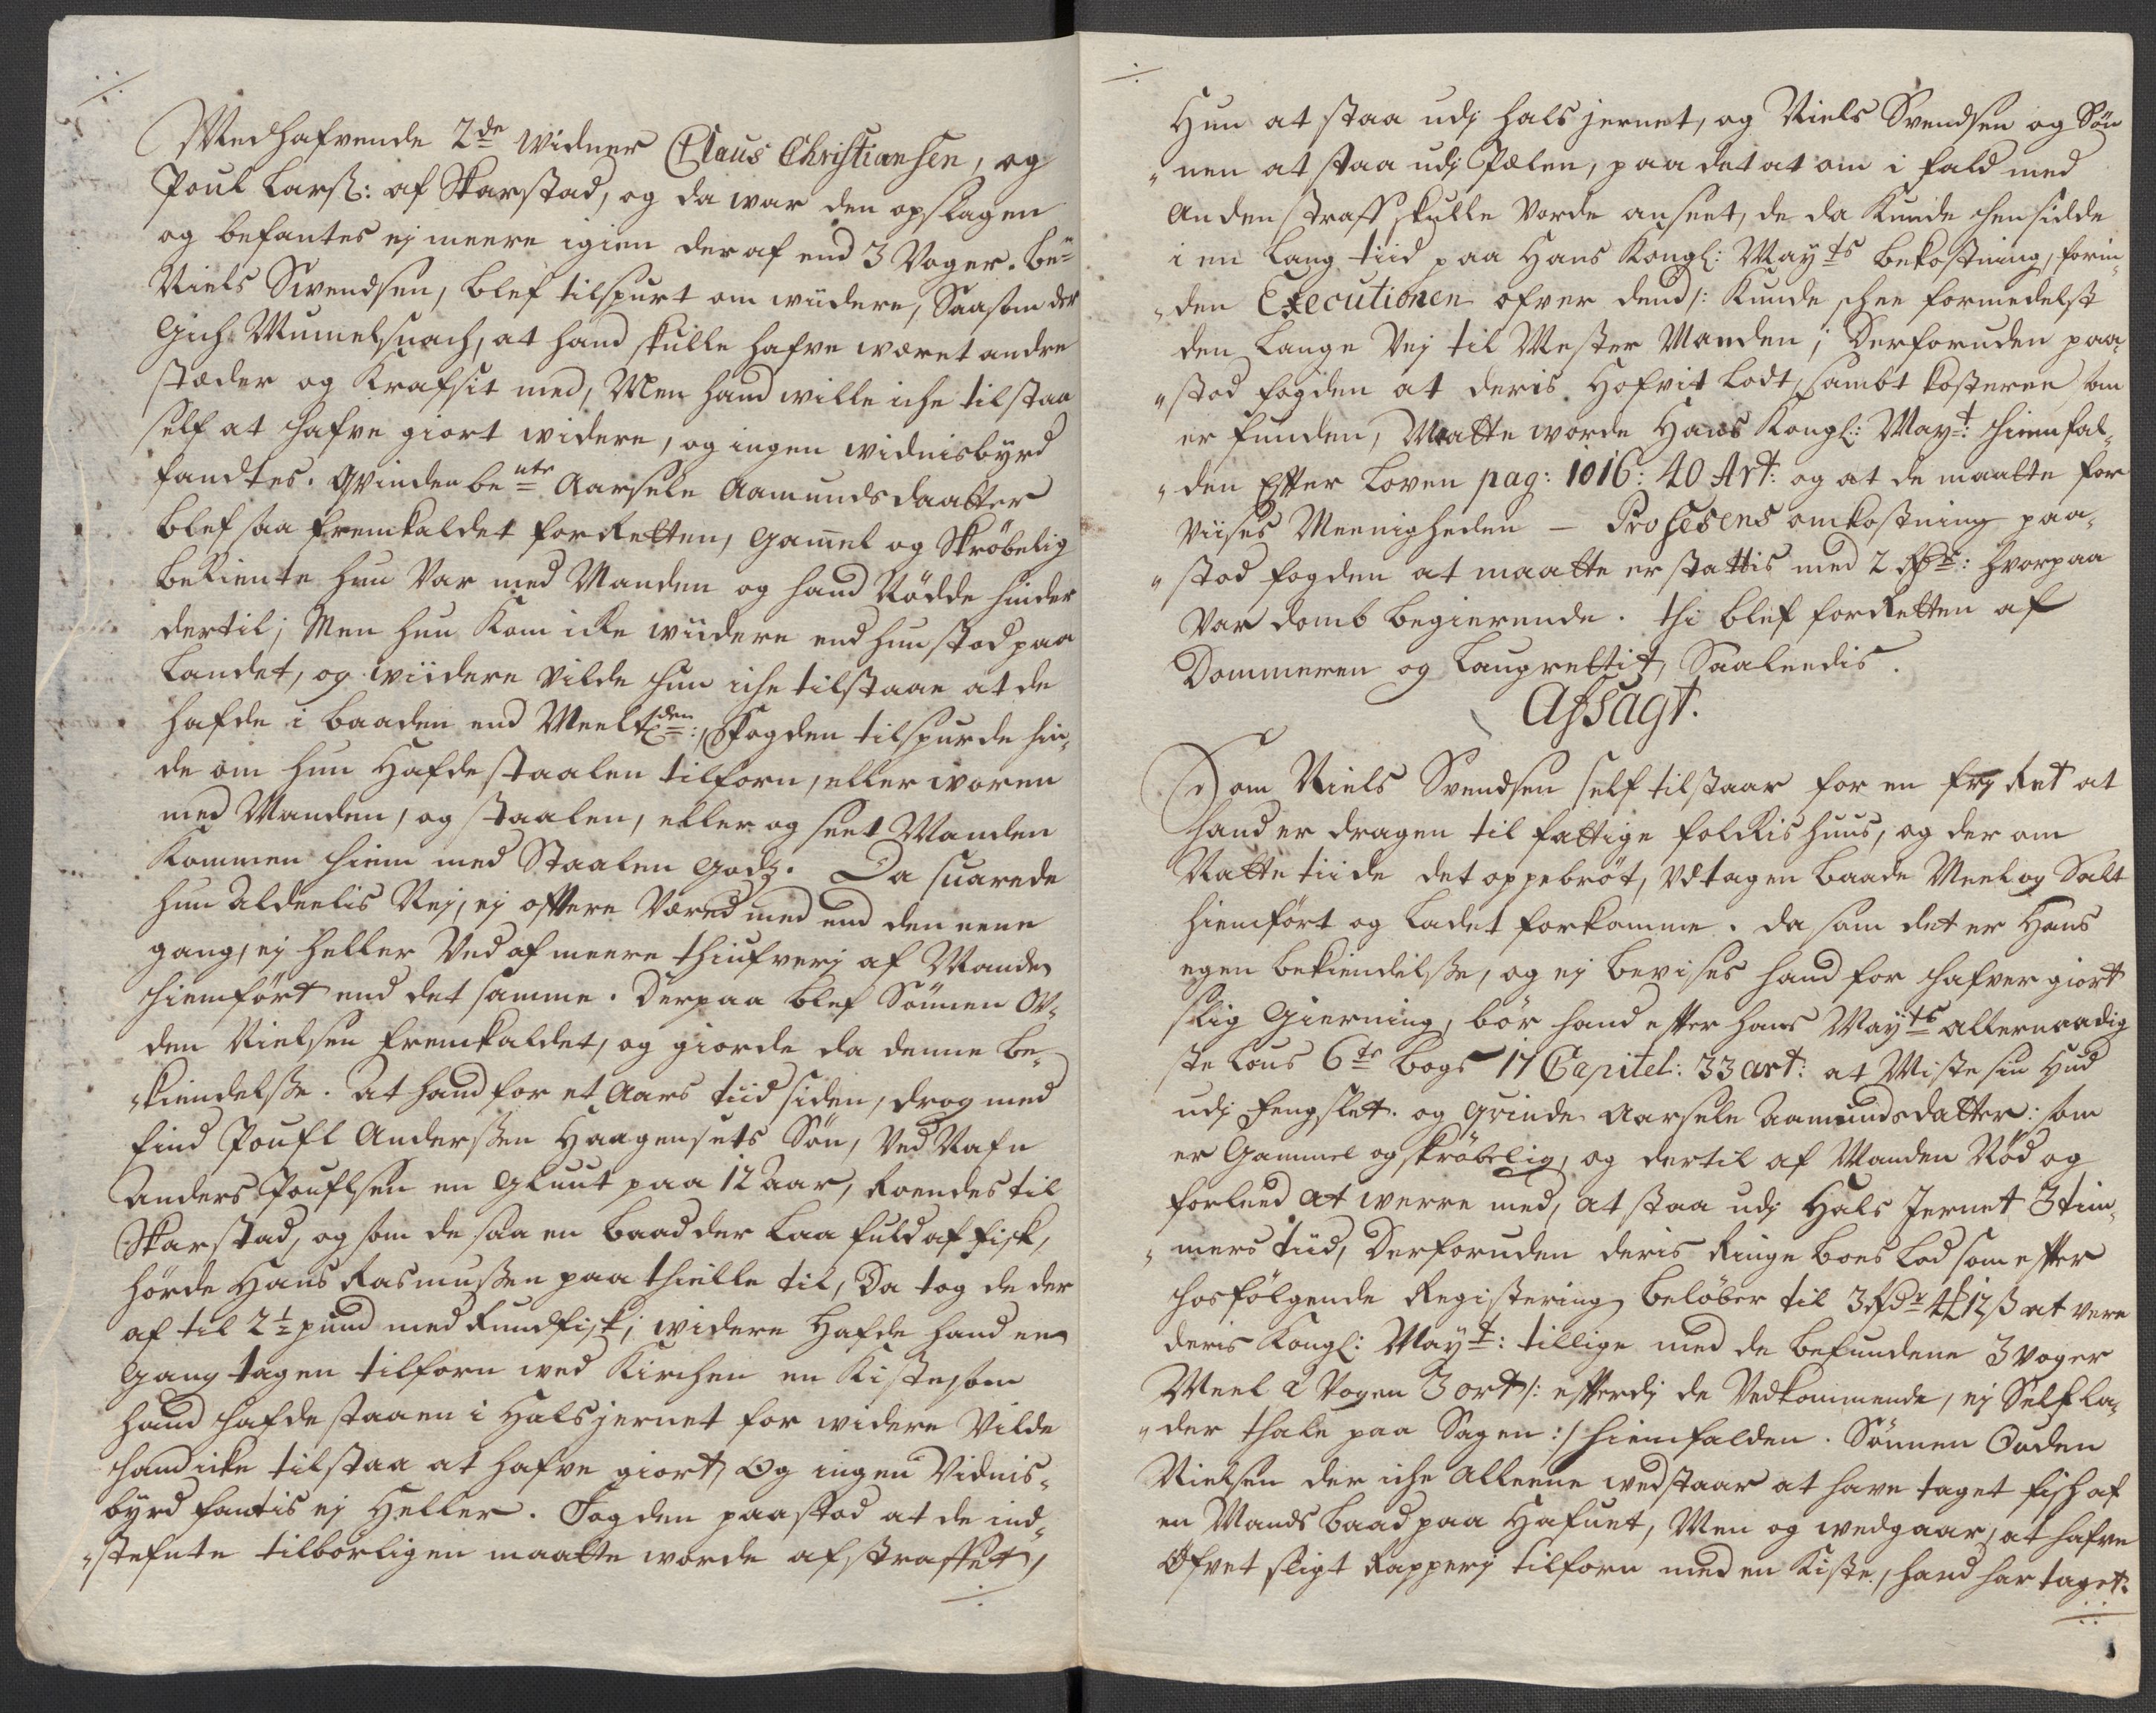 Medhafvende 2de Widner Claus Christiansen, og
Poul Larss: af Skarstad, og da war den opslagen
og befantes ej meere igien deraf end 3 Voger. be-
Niels Swendsen, blef tilspurt om wiidere, Saasom der
Gich Mumelsnach, at hand skulle hafve wæret andre
stæder og Krafsit med, Men hand wille iche tilstaa
self at hafve giort widere, og ingen widnisbyrd
fandtes. Qvinden bente Aarsele Aamundsdaatter
blef saa fremkaldet for Retten, Gammel og Skröbelig
bekiente hun Var med Manden og hand Nödde hinder
dertil; Men hun Kom icke wiidere end hun stod paa
Landet, og wiidere vilde hun iche tilstaae at de
hafde i baaden end Meelet den:, Fogden tilspurde hin-
de om hun Hafde staalen tilforn, eller woren
med Manden, og staalen, eller og seet Manden
Kommen hiem med Staalen Gods. Da suarede
hun Aldeelis Nej, ej oftere Væred med end den eene
gang, ej heller Ved af meere thiufverj af Manden
hiemfört end det samme. Derpaa blef Sönnen Ov-
den Nielsen fremkaldet, og giorde da denne be-
"kiendelsse. At hand for et Aars tiid siden, drog med
find Poufl Anderssen Haagensets Sön, Ved Nafn
Anders Pouflsen en Gluut paa 12 Aar, Roendes til
Skarstad, og som de saa en baad der laa fuld af fisk,
hörde Hans Rasmussen paa thielle til, Da tog de der
af til 2½ pund med Rundfisk; widere Hafde hand en
Gang tagen tilforn wed Kirchen en Kiste, som
hand hafde staaen i Halsjernet for widere Vilde
hand icke tilstaa at hafve giort, Og ingen Vidnis-
byrd fantis ej Heller. Fogden paastod at de ind-
"stefnte tilbörligen maatte worde afstraffet,
Hun at staa udj halsjernet, og Niels Svendsen og Sön
"nen at staa udj Pælen, paa det at om i fald med
Anden straff skulle Vorde anseet, de da Kunde chen sidde
i en Lang tiid paa Hans Kongl: Mayts bekostning, forin-
"den Executionen ofver dend /: Kunde schee formedelst
den Lange Vej til Mester Manden; Derforuden paa-
"stod fogden at deris Hofvit Lodt, sambt kosterne som
er funden, Maatte worde Hans Kongl: Mayt: hiemfal-
"den Efter Loven pag: 1016: 40 Art: og at de maatte for
Viises Meenigheden - Prosesens omkostning paa-
"stod fogden at maatte erstattis med 2 Rdr: hvorpaa
Var domb begierende. thi blef for Retten af
Dommeren og Laugrettit, Saaleedis.
Afsagt.
Som Niels Svendsen self tilstaar for en frj Ret at
hand er dragen til fattige folckis huus, og der om
Natte tiide det oppebröt, Udtagen baade Meel og Salt
hiemfört og ladet forkomme. da som det er Hans
egen bekiendelsse, og ej bevises hand for hafver giort
slig Gierning, bör hand efter hans Mayts allernaadig
ste Lous 6te bogs 17 Capitel: 33 art: at Miste sin Hud
udj fengslet. og Qvinden Aarsele Aamundsdatter: som
er Gammel og skröbelig, og dertil af Manden Nöd og
forleed at werre med, at staa udj Hals Jernet 3 tim-
"mers tiid, Derforuden deris Ringe boes lod som efter
hosfölgende Registering, belöber til 3 Rdr 4 12 s at vere
deris Kongl: Mayt: tillige med de befundene 3 Voger
Meel a Vogen 3 ort /: efterdj de Vedkommende, ej Self la-
"der thale paa Sagen :/ hiemfalden. Sönnen Ouden
Nielsen der iche Alleene wedstaar at have taget fish af
en Mands baad paa Hafuet, Men og wedgaar, at hafve
Öfvet sligt Rapperj tilforn med en Kiste, hand har taget.